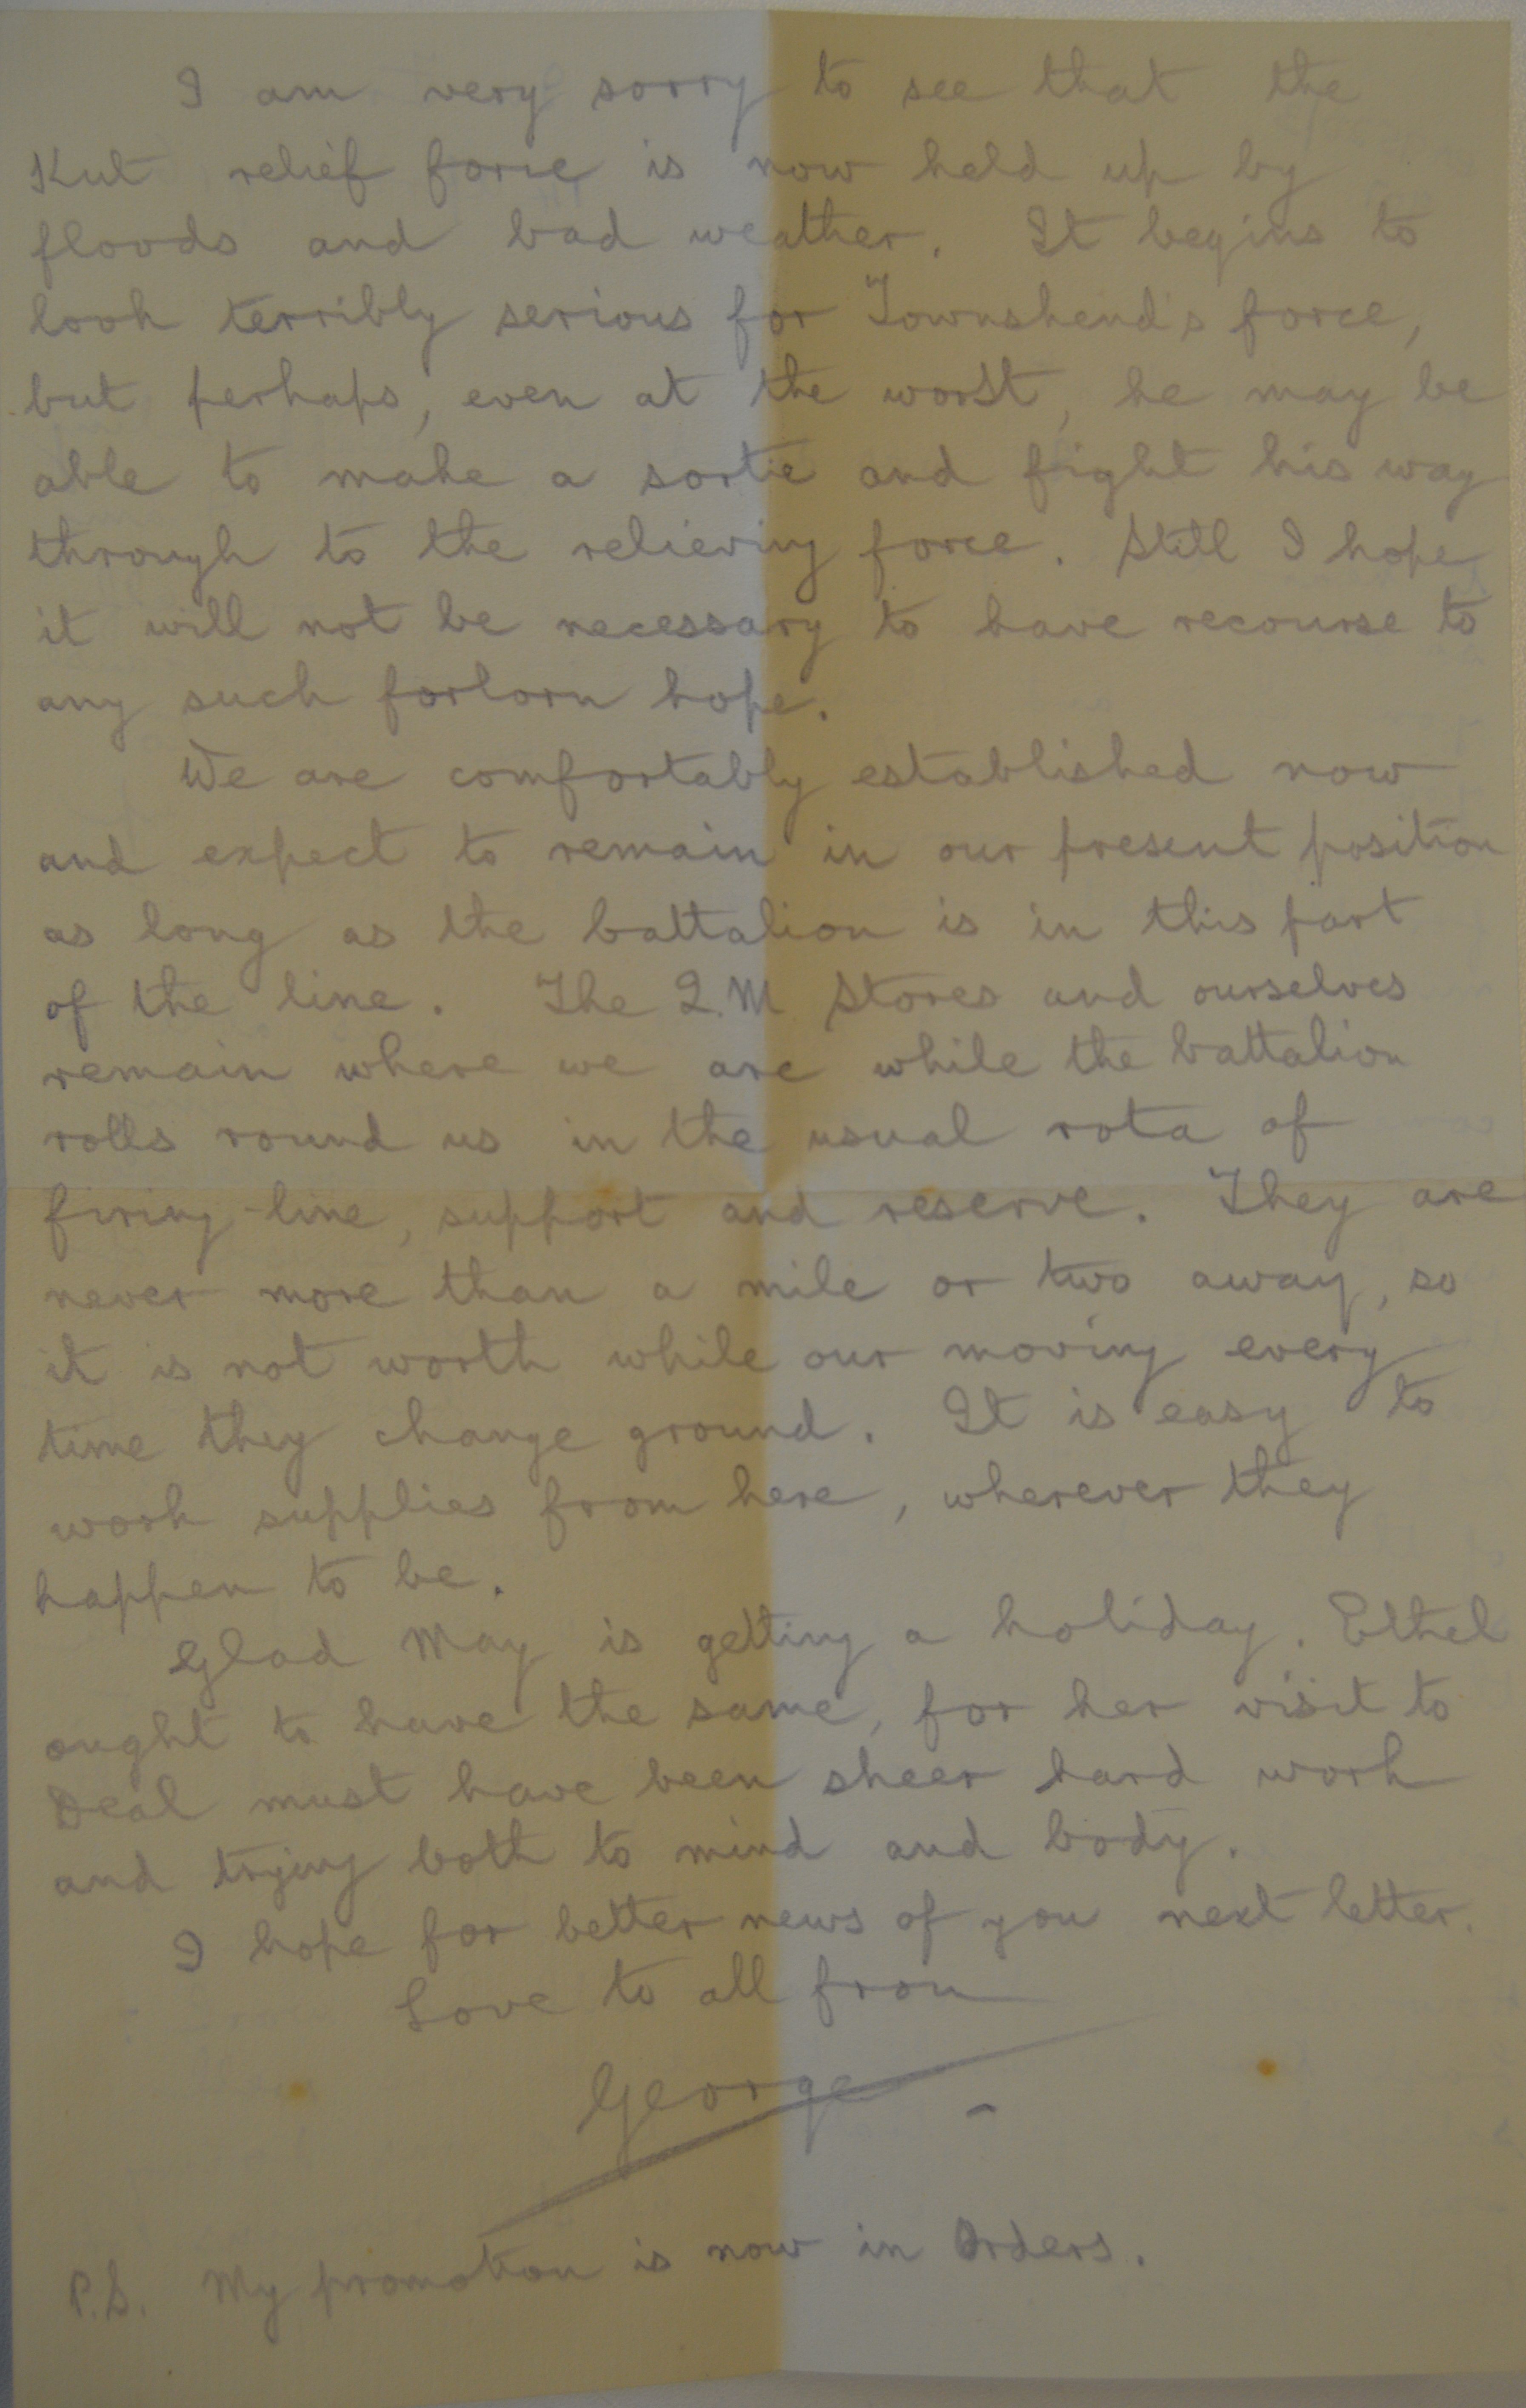 I am very sorry to see that the
Kut relief force is now held up by
floods and bad weather. It begins to
look terribly serious for Townshend's force,
but perhaps, even at the worst, he may be
able to make a sortie and fight his way
through to the relieving force. Still I hope
it will not be necessary to have recourse to
any such forlorn hope.
We are comfortably established now
and expect to remain in our present position
as long as the battalion is in this part
of the line. The Q.M. Stores and ourselves
remain where we are while the battalion
rolls round us in the usual rota of
firing-line, support and reserve. They are
never more than a mile or two away, so
it is not worth while our moving every
time they change ground. It is easy to
work supplies from here, wherever they
happen to be.
Glad May is getting a holiday. Ethel
ought to have the same, for her visit to
Deal must have been sheer hard work
and trying both to mind and body.
I hope for better news of you next letter.
Love to all from
George
P.S. My promotion is now in Orders.